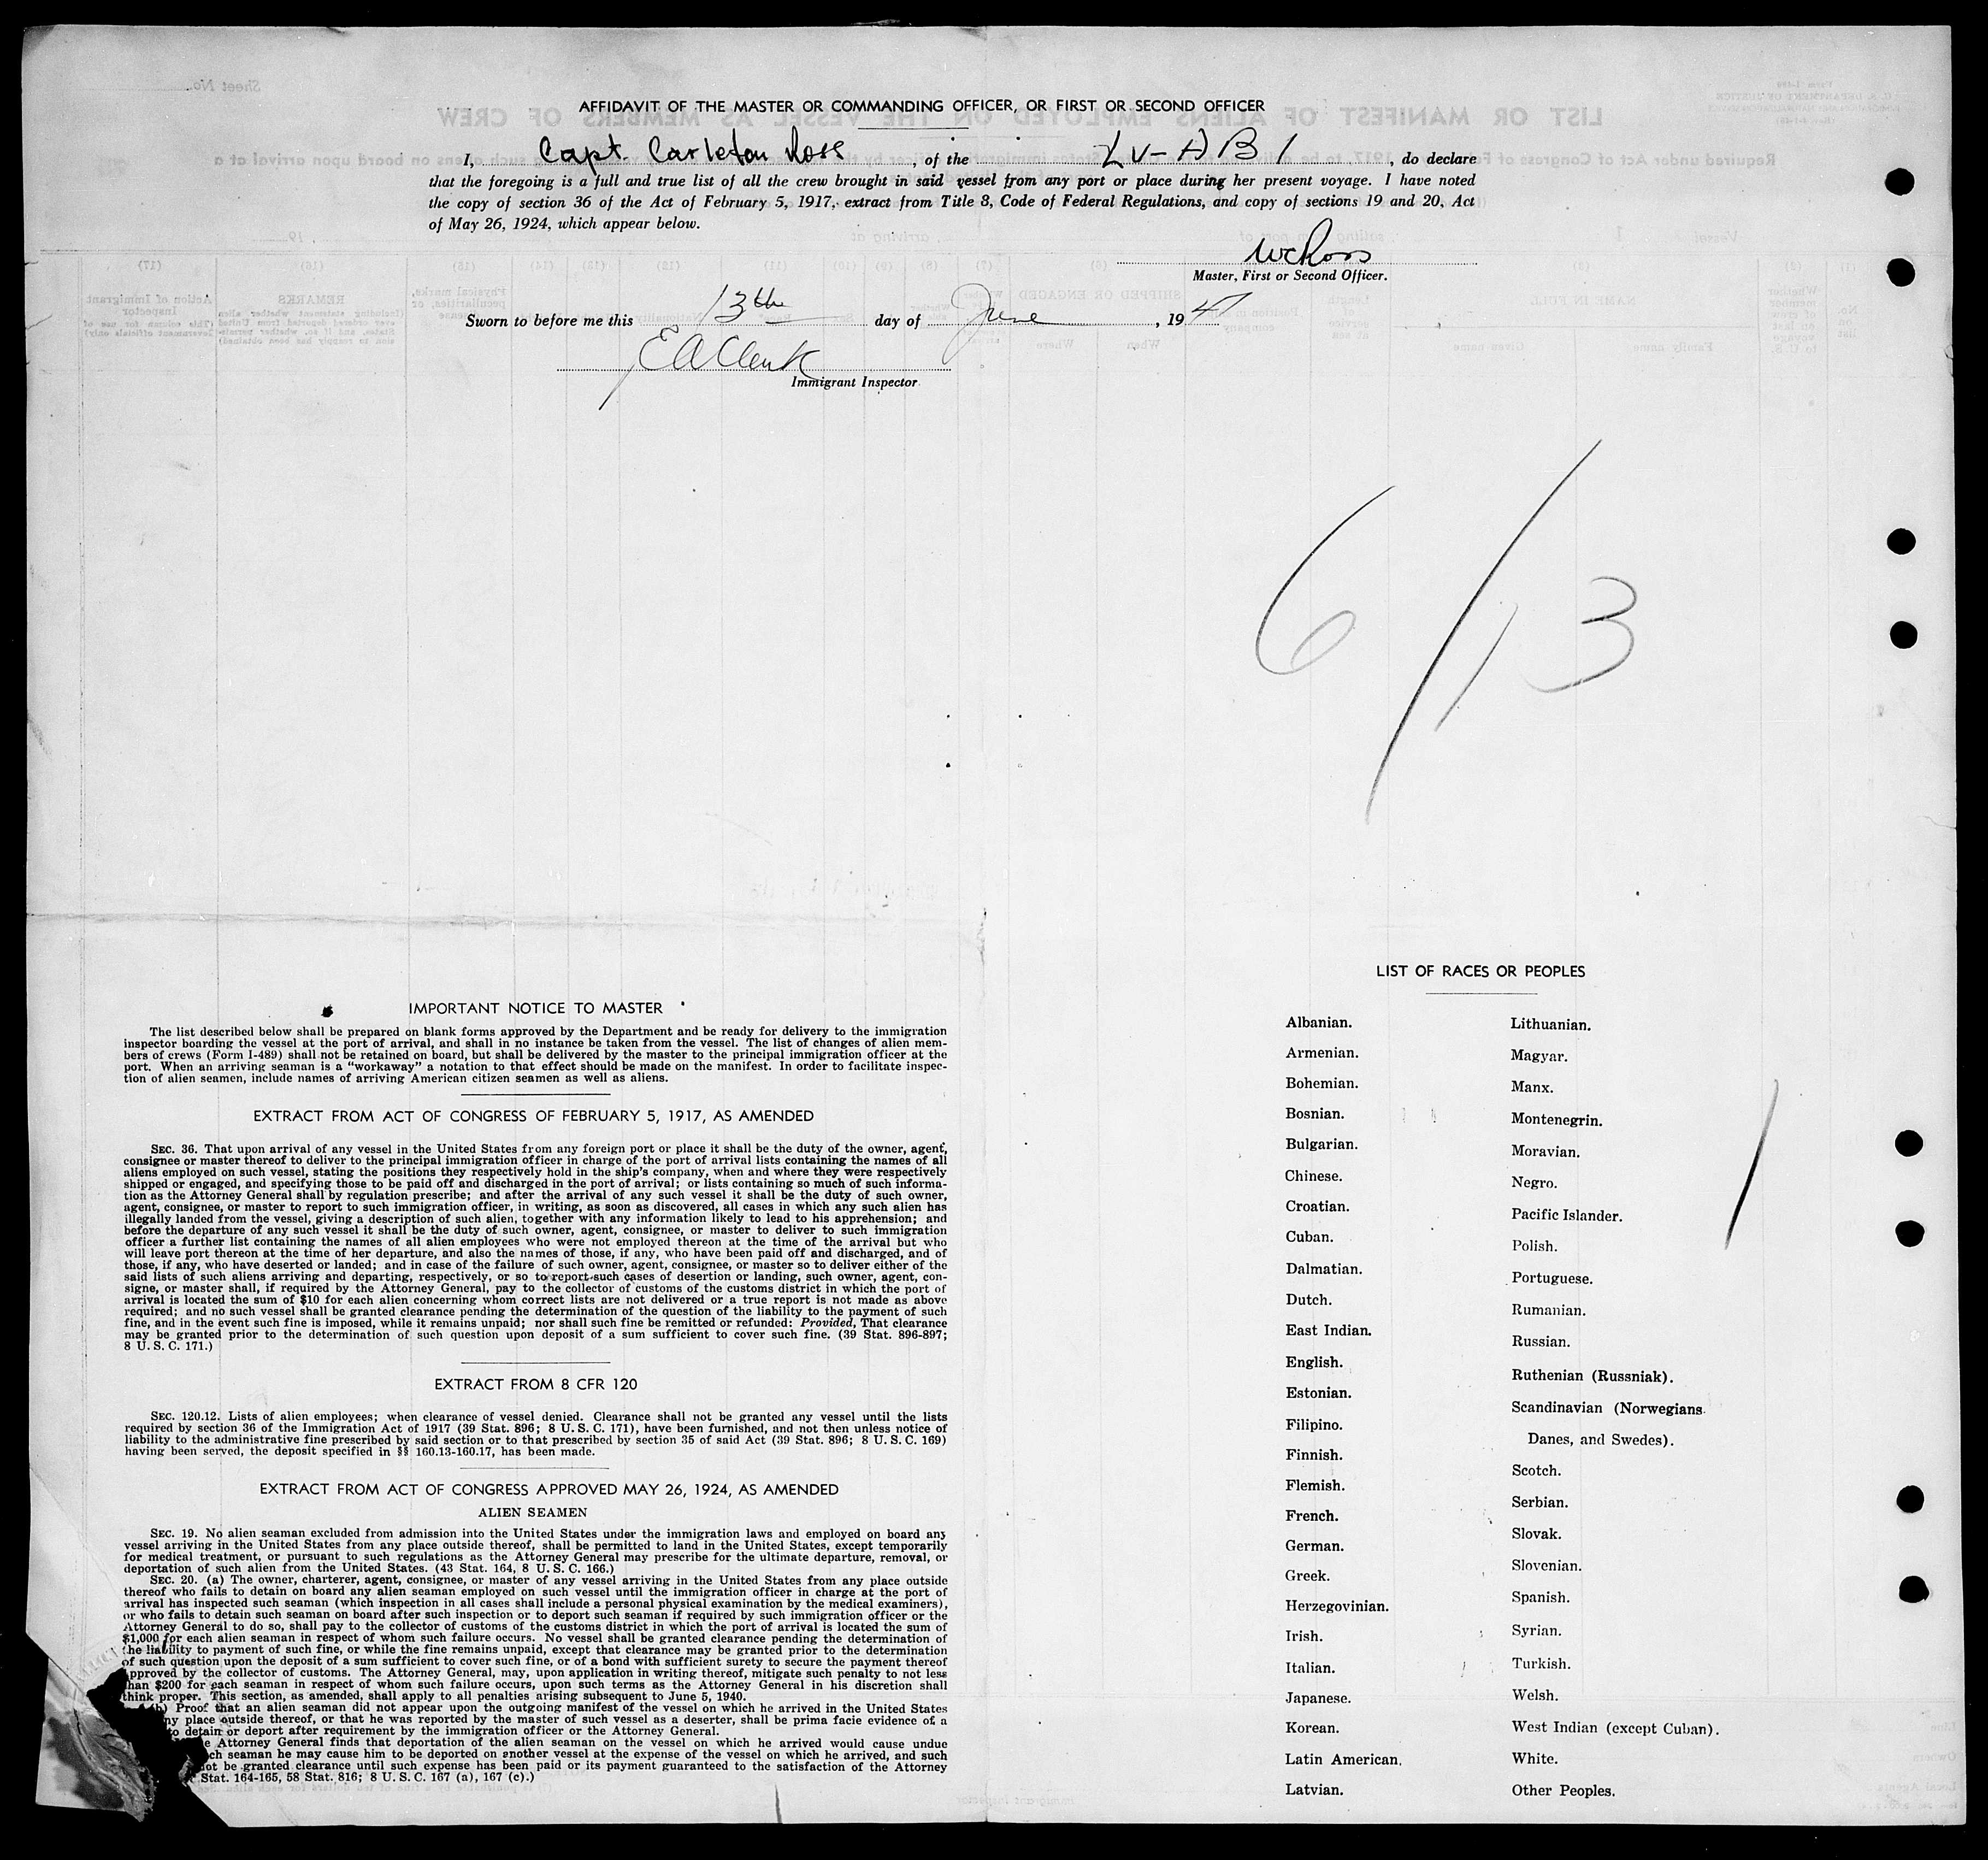 AFFIDAVIT OF THE MASTER OR COMMANDING OFFICER, OR FIRST OR SECOND OFFICER
I, Capt. Carleton Ross, of the LV-AB1, do declare
that the foregoing is a full and true list of all the crew brought in said vessel from any port or place during her present voyage. I have noted
the copy of section 36 of the Act of February 5, 1917, extract from Title 8, Code of Federal Regulations, and copy of sections 19 and 20, Act
of May 26, 1924, which appear below.
WCRoss
Master, First or Second Officer.
Sworn to before me this 13th day of June, 1947
E A Clark
Immigrant Inspector
6/13
IMPORTANT NOTICE TO MASTER
The list described below shall be prepared on blank forms approved by the Department and be ready for delivery to the immigration
inspector boarding the vessel at the port of arrival, and shall in no instance be taken from the vessel. The list of changes of alien mem-
bers of crews (Form I-489) shall not be retained on board, but shall be delivered by the master to the principal immigration officer at the
port. When an arriving seaman is a "workaway" a notation to that effect should be made on the manifest. In order to facilitate inspec-
tion of alien seamen, include names of arriving American citizen seamen as well as aliens.
EXTRACT FROM ACT OF CONGRESS OF FEBRUARY 5, 1917, AS AMENDED
SEC. 36. That upon arrival of any vessel in the United States from any foreign port or place it shall be the duty of the owner, agent,
consignee or master thereof to deliver to the principal immigration officer in charge of the port of arrival lists containing the names of all
aliens employed on such vessel, stating the positions they respectively hold in the ship's company, when and where they were respectively
shipped or engaged, and specifying those to be paid off and discharged in the port of arrival; or lists containing so much of such informa-
tion as the Attorney General shall by regulation prescribe; and after the arrival of any such vessel it shall be the duty of such owner,
agent, consignee, or master to report to such immigration officer, in writing, as soon as discovered, all cases in which any such alien has
illegally landed from the vessel, giving a description of such alien, together with any information likely to lead to his apprehension; and
before the departure of any such vessel it shall be the duty of such owner, agent, consignee, or master to deliver to such immigration
officer a further list containing the names of all alien employees who were not employed thereon at the time of the arrival but who
will leave port thereon at the time of her departure, and also the names of those, if any, who have been paid off and discharged, and of
those, if any, who have deserted or landed; and in case of the failure of such owner, agent, consignee, or master so to deliver either of the
said lists of such aliens arriving and departing, respectively, or so to report such cases of desertion or landing, such owner, agent, con-
signe, or master shall, if required by the Attorney General, pay to the collector of customs of the customs district in which the port of
arrival is located the sum of $10 for each alien concerning whom correct lists are not delivered or a true report is not made as above
required; and no such vessel shall be granted clearance pending the determination of the question of the liability to the payment of such
fine, and in the event such fine is imposed, while it remains unpaid; nor shall such fine be remitted or refunded: Provided, That clearance
may be granted prior to the determination of such question upon deposit of a sum sufficient to cover such fine. (39 Stat. 896-897;
8 U. S. C. 171.)
EXTRACT FROM 8 CFR 120
SEC. 120.12. Lists of alien employees; when clearance of vessel denied. Clearance shall not be granted any vessel until the lists
required by section 36 of the Immigration Act of 1917 (39 Stat. 896; 8 U. S. C. 171), have been furnished, and not then unless notice of
liability to the administrative fine prescribed by said section or to that prescribed by section 35 of said Act (39 Stat. 896; 8 U. S. C. 169)
having been served, the deposit specified in §§ 160.13-160.17, has been made.
EXTRACT FROM ACT OF CONGRESS APPROVED MAY 26, 1924, AS AMENDED
ALIEN SEAMEN
SEC. 19. No alien seaman excluded from admission into the United States under the immigration laws and employed on board any
vessel arriving in the United States from any place outside thereof, shall be permitted to land in the United States, except temporarily
for medical treatment, or pursuant to such regulations as the Attorney General may prescribe for the ultimate departure, removal, or
deportation of such alien from the United States. (43 Stat. 164, 8 U. S. C. 166.)
SEC. 20. (a) The owner, charterer, agent, consignee, or master of any vessel arriving in the United States from any place outside
thereof who fails to detain on board any alien seaman employed on such vessel until the immigration officer in charge at the port of
arrival has inspected such seaman (which inspection in all cases shall include a personal physical examination by the medical examiners),
or who fails to detain such seaman on board after such inspection or to deport such seaman if required by such immigration officer or the
Attorney General to do so, shall pay to the collector of customs of the customs district in which the port of arrival is located the sum of
$1,000 for each alien seaman in respect of whom such failure occurs. No vessel shall be granted clearance pending the determination of
the liability to payment of such fine, or while the fine remains unpaid, except that clearance may be granted prior to the determination
of such question upon the deposit of a sum sufficient to cover such fine, or of a bond with sufficient surety to secure the payment thereof
approved by the collector of customs. The Attorney General, may, upon application in writing thereof, mitigate such penalty to not less
than $200 for each seaman in respect of whom such failure occurs, upon such terms as the Attorney General in his discretion shall
think proper. This section, as amended, shall apply to all penalties arising subsequent to June 5, 1940.
(b) Proof that an alien seaman did not appear upon the outgoing manifest of the vessel on which he arrived in the United States
ny place outside thereof, or that he was reported by the master of such vessel as a deserter, shall be prima facie evidence of a
to detain or deport after requirement by the immigration officer or the Attorney General.
Attorney General finds that deportation of the alien seaman on the vessel on which he arrived would cause undue
ch seaman he may cause him to be deported on another vessel at the expense of the vessel on which he arrived, and such
not be granted clearance until such expense has been paid or its payment guaranteed to the satisfaction of the Attorney
Stat. 164-165, 58 Stat. 816; 8 U. S. C. 167 (a), 167 (c).)
LIST OF RACES OR PEOPLES
Albanian.
Armenian.
Bohemian.
Bosnian.
Bulgarian.
Chinese.
Croatian.
Cuban.
Dalmatian.
Dutch.
East Indian.
English.
Estonian.
Filipino.
Finnish.
Flemish.
French.
German.
Greek.
Herzegovinian.
Irish.
Italian.
Japanese.
Korean.
Latin American.
Latvian.
Lithuanian.
Magyar.
Manx.
Montenegrin.
Moravian.
Negro.
Pacific Islander.
Polish.
Portuguese.
Rumanian.
Russian.
Ruthenian (Russniak).
Scandinavian (Norwegians
Danes, and Swedes).
Scotch.
Serbian.
Slovak.
Slovenian.
Spanish.
Syrian.
Turkish.
Welsh.
West Indian (except Cuban).
White.
Other Peoples.